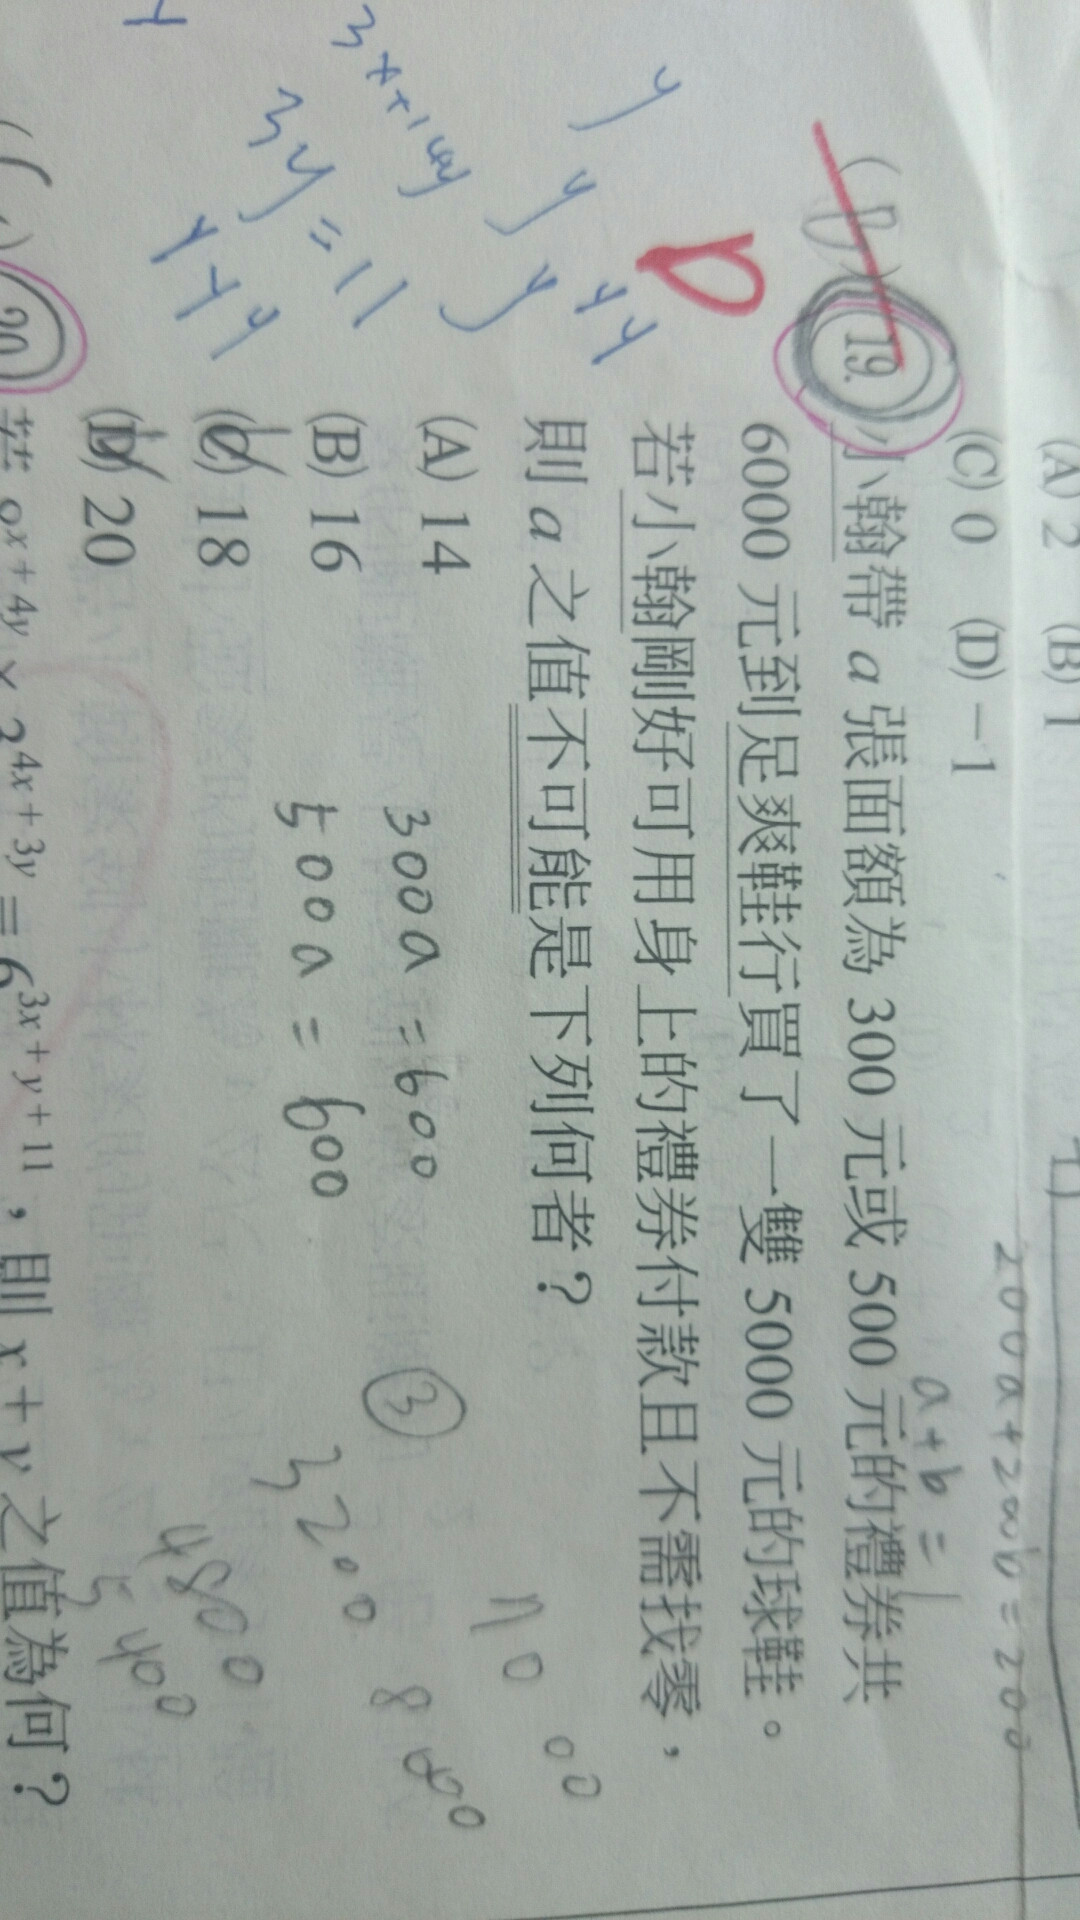 (A) 2 (B) 1
(C) 0 (D) －1
200a+200b=200
a+b=1
(B) 19. 小翰帶 a 張面額為 300 元或 500 元的禮券共
6000 元到足爽鞋行買了一雙 5000 元的球鞋。
若小翰剛好可用身上的禮券付款且不需找零，
則 a 之值不可能是下列何者？
D
(A) 14
(B) 16
(C) 18
(D) 20
300a=600
500a=600
③
3200
4800
5400
800
y
y
y
y y
3x+14y
3y=11
y y y
y
20. 若 9x+4y × 24x+3y = 63x+y+11，則 x+y 之值為何？